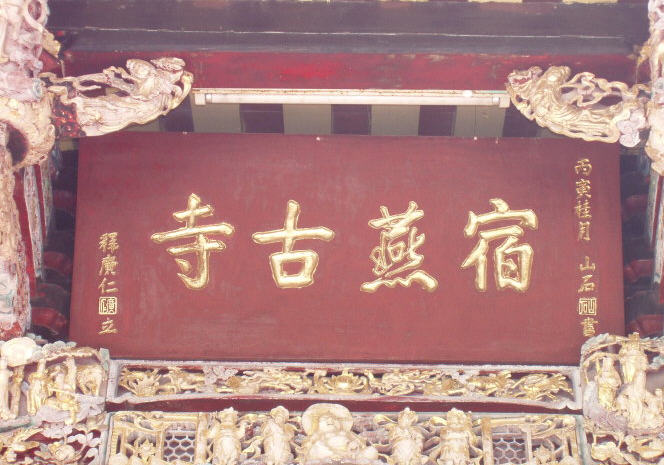 丙寅桂月 山石書
宿燕古寺
釋廣仁立